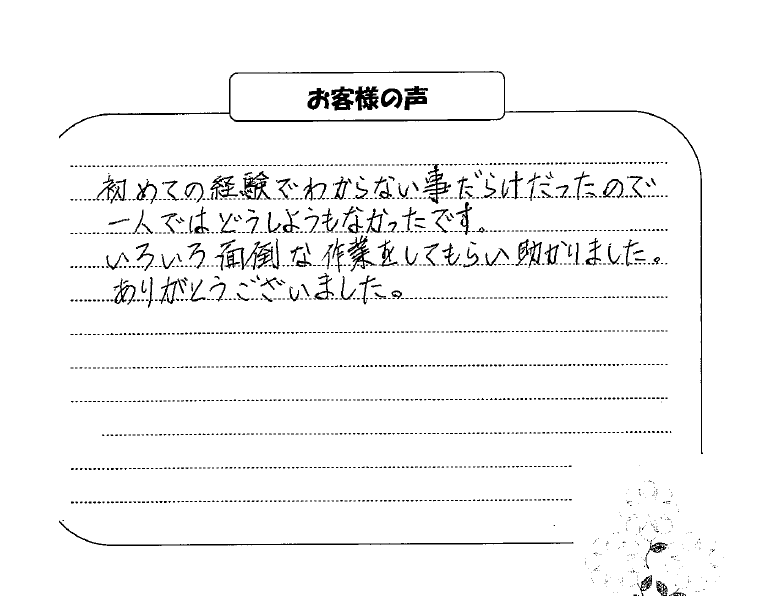 お客様の声
初めての経験でわからない事だらけだったので
一人ではどうしようもなかったです。
いろいろ面倒な作業をしてもらい助かりました。
ありがとうございました。